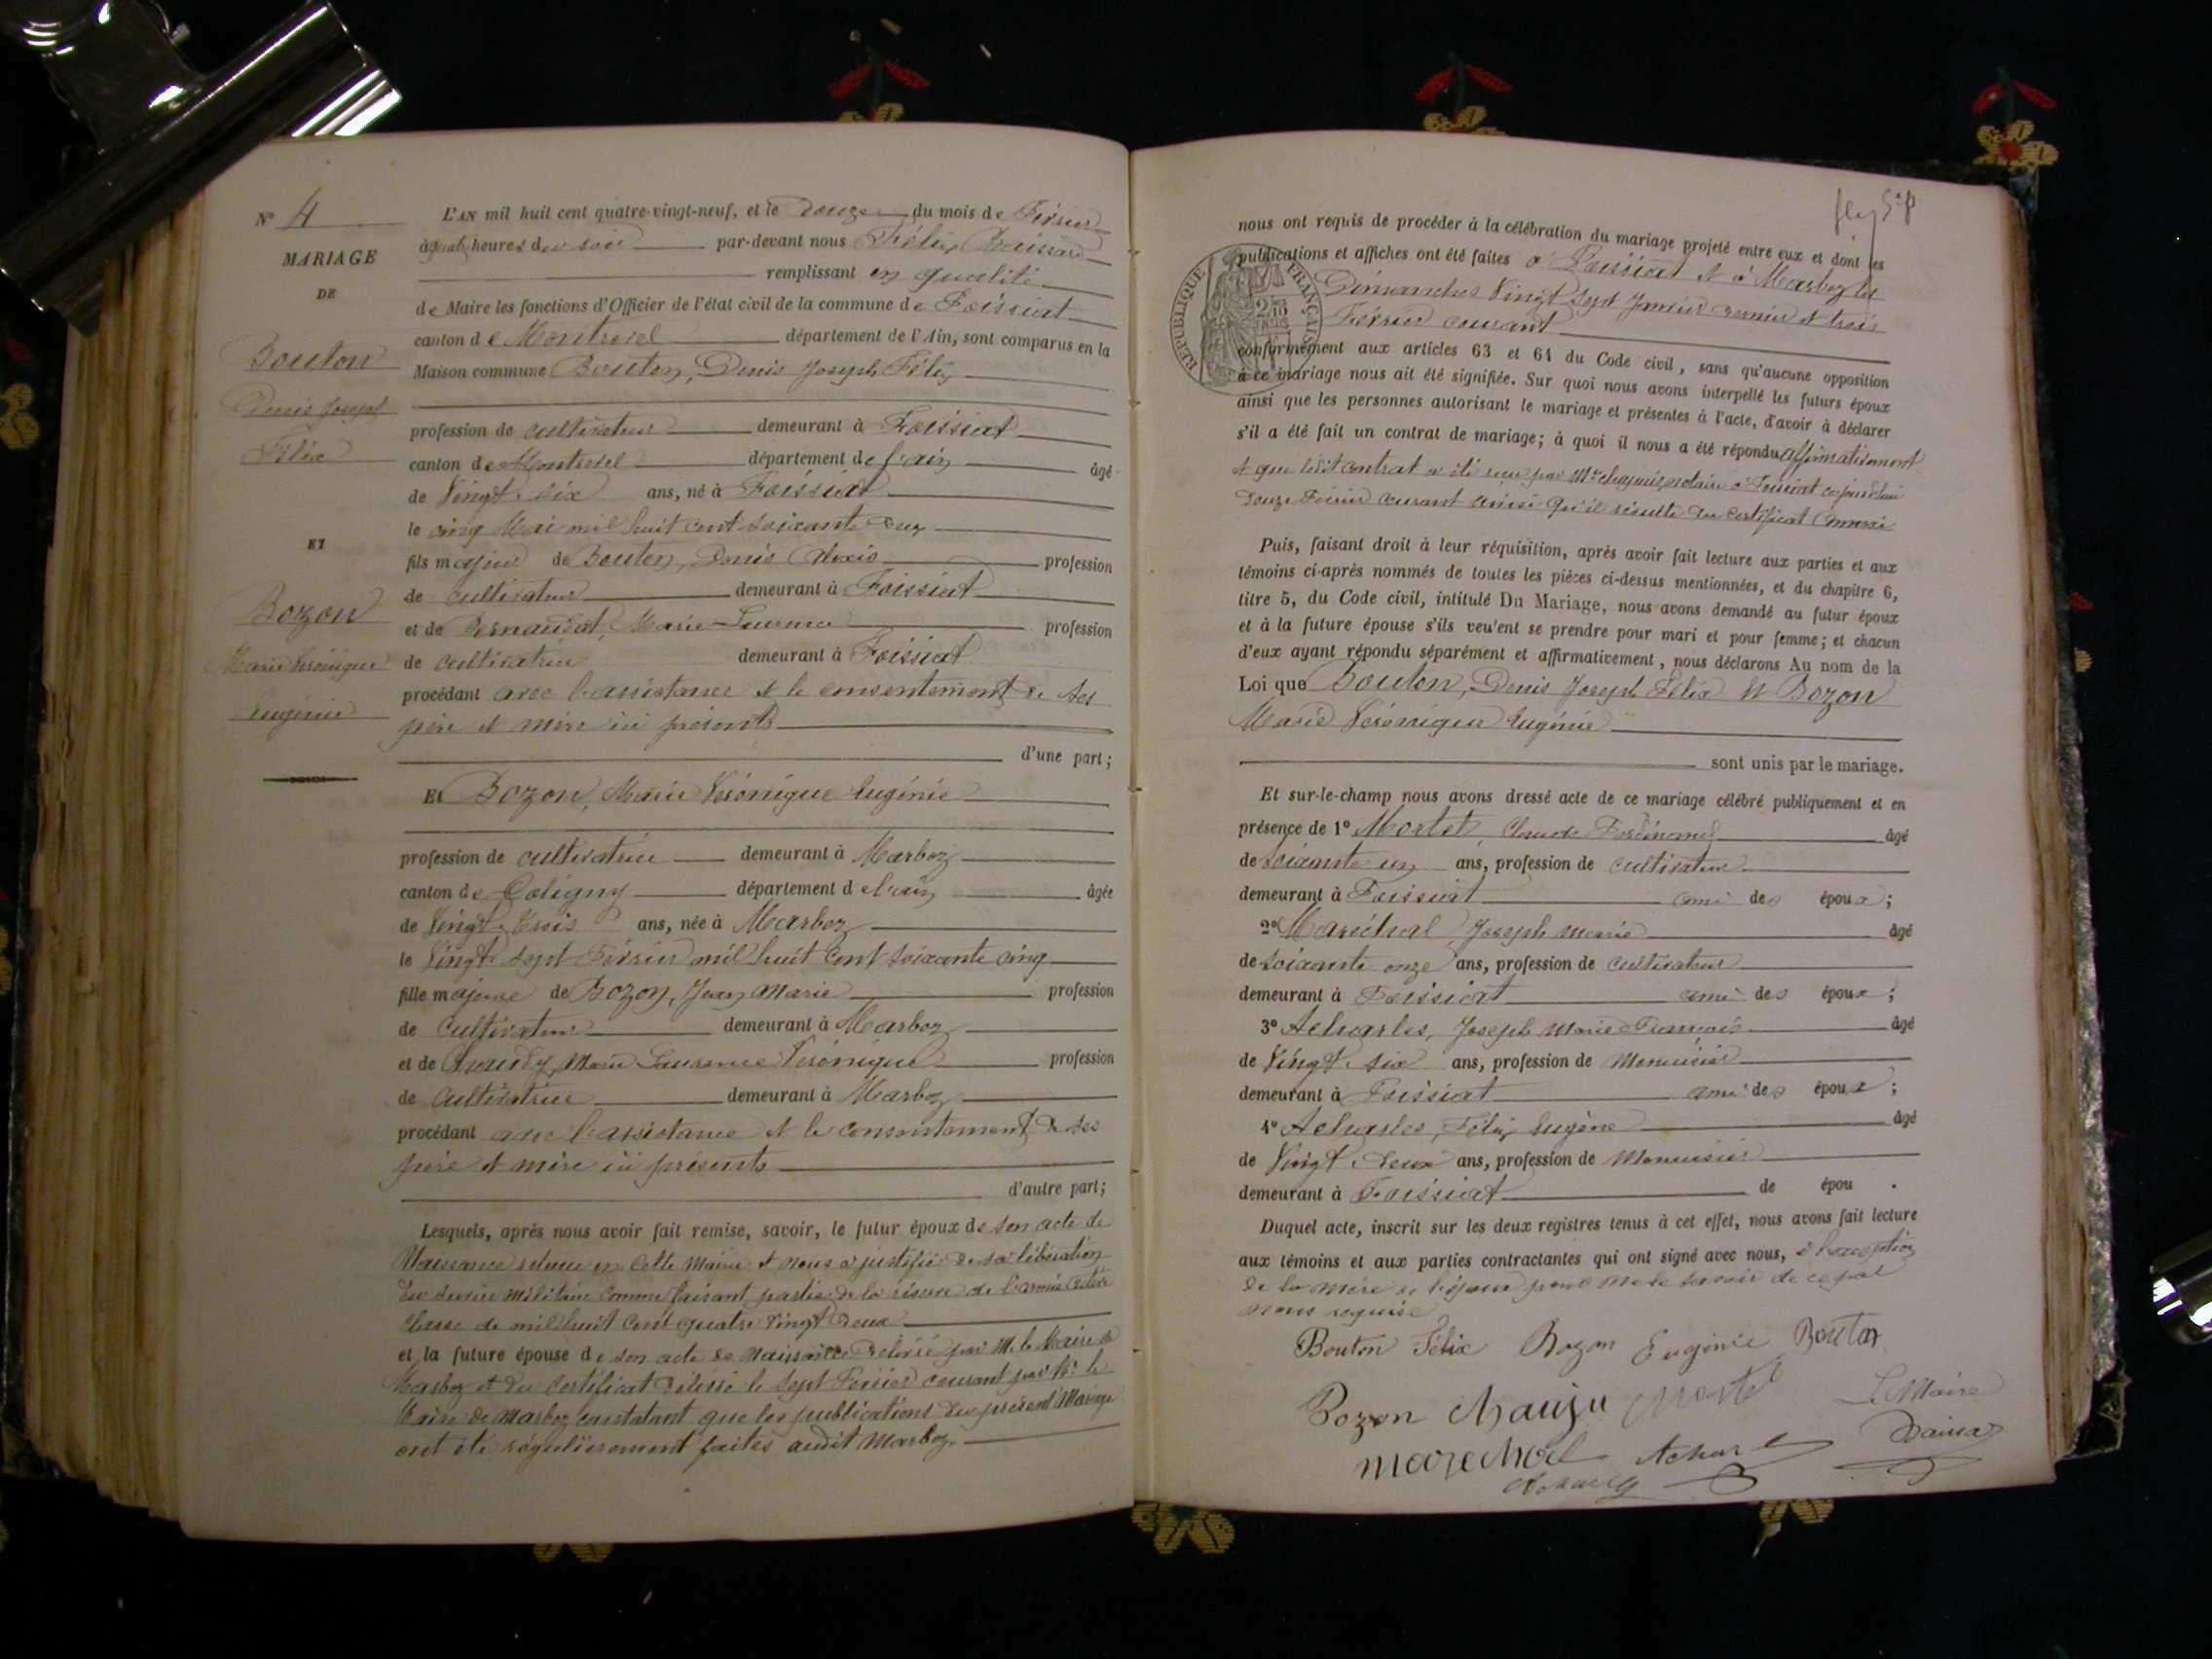 N° 4
MARIAGE
DE
Bouton
Denis Joseph
Félix
ET
Bozon
Marie Véronique
Eugénie
L'AN mil huit cent quatre-vingt-neuf, et le Douze du mois de Février
à heures du soir par-devant nous Félix
remplissant en qualité
de Maire les fonctions d'Officier de l'état civil de la commune de Foissiat
canton de Montrevel département de l'Ain, sont comparus en la
Maison commune Bouton, Denis Joseph Félix
profession de cultivateur demeurant à Foissiat
canton de Montrevel département de l'ain âgé
de Vingt six ans, né à Foissiat
le cinq Mai mil huit cent soixante deux
fils majeur de Bouton, Denis Alexis profession
de cultivateur demeurant à Foissiat
et de Marie profession
de cultivatrice demeurant à Foissiat
procédant avec l'assistance et le consentement de ses
père et mère ici présents
d'une part;
Et Bozon, Marie Véronique Eugénie
profession de cultivatrice demeurant à Marboz
canton de Coligny département de l'ain âgée
de Vingt trois ans, née à Marboz
le Vingt sept Février mil huit cent soixante cinq
fille majeure de Bozon, Jean Marie profession
de cultivateur demeurant à Marboz
et de Marie Laurence Véronique profession
de cultivatrice demeurant à Marboz
procédant avec l'assistance et le consentement de ses
père et mère ici présents
d'autre part;
Lesquels, après nous avoir fait remise, savoir, le futur époux de son acte de
Naissance retenu en cette Mairie et nous a justifié de sa libération
du service militaire comme faisant partie de la réserve de l'armée active
classe de mil huit cent quatre vingt deux
et la future épouse de son acte de naissance délivré par M. le Maire de
Marboz et du certificat délivré le sept Février courant par Mr le
Maire de Marboz constatant que les publications du présent Mariage
ont été régulièrement faites audit Marboz.
nous ont requis de procéder à la célébration du mariage projeté entre eux et dont les
publications et affiches ont été faites à Foissiat et à Marboz les
Dimanches Vingt sept Janvier dernier et trois
Février courant
RÉPUBLIQUE FRANÇAISE
conformément aux articles 63 et 64 du Code civil, sans qu'aucune opposition
à ce mariage nous ait été signifiée. Sur quoi nous avons interpellé les futurs époux
ainsi que les personnes autorisant le mariage et présentes à l'acte, d'avoir à déclarer
s'il a été fait un contrat de mariage; à quoi il nous a été répondu affirmativement
et que ledit contrat a été reçu par Me notaire à Foissiat ce jourd'hui
Douze Février courant ainsi qu'il résulte du certificat annexé
Puis, faisant droit à leur réquisition, après avoir fait lecture aux parties et aux
témoins ci-après nommés de toutes les pièces ci-dessus mentionnées, et du chapitre 6,
titre 5, du Code civil, intitulé Du Mariage, nous avons demandé au futur époux
et à la future épouse s'ils veulent se prendre pour mari et pour femme; et chacun
d'eux ayant répondu séparément et affirmativement, nous déclarons Au nom de la
Loi que Bouton, Denis Joseph Félix et Bozon
Marie Véronique Eugénie
sont unis par le mariage.
Et sur-le-champ nous avons dressé acte de ce mariage célébré publiquement et en
présence de 1° Mortel, Claude Ferdinand âgé
de soixante un ans, profession de cultivateur
demeurant à Foissiat ami des époux;
2° Maréchal Joseph Marie âgé
de soixante onze ans, profession de cultivateur
demeurant à Foissiat ami des époux;
3° Acharles, Joseph Marie François âgé
de Vingt six ans, profession de Menuisier
demeurant à Foissiat ami des époux;
4° Acharles, Félix Eugène âgé
de Vingt deux ans, profession de Menuisier
demeurant à Foissiat de épou .
Duquel acte, inscrit sur les deux registres tenus à cet effet, nous avons fait lecture
aux témoins et aux parties contractantes qui ont signé avec nous, à l'exception
de la mère de l'époux pour ne le savoir de ce par
nous requise
Bouton Félix Bozon Eugénie Bouton
Bozon Mortel Le Maire
marechal Acharles